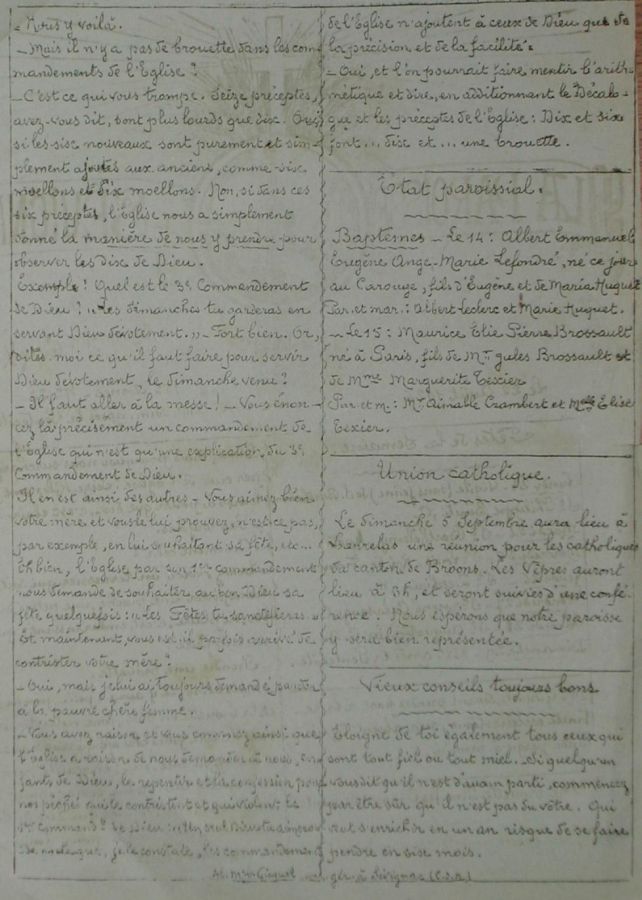 - Nous y voilà.
- Mais il n'y a pas de brouette dans les com-
mandements de l'Eglise ?
- C'est ce qui vous trompe. Seize préceptes,
avez-vous dit, sont plus lourds que dix. Oui
si les six nouveaux sont purement et sim-
plement ajoutés aux anciens, comme six
moellons et dix moellons. Non, si dans ces
six préceptes, l'Eglise nous a simplement
donné la manière de nous y prendre pour
observer les dix de Dieu.
Exemple ! Quel est le 3e Commandement
de Dieu ? "Les dimanches tu garderas en
servant Dieu dévotement." - Fort bien. Or,
dites-moi ce qu'il faut faire pour servir
Dieu dévotement, le dimanche venu ?
- Il faut aller à la messe ! - Vous énon-
cez là précisément un commandement de
l'Eglise qui n'est qu'une explication du 3e
Commandement de Dieu.
Il en est ainsi des autres - Vous aimez bien
votre mère et vous le lui prouvez, n'est-ce pas,
par exemple, en lui souhaitant sa fête, etc...
Eh bien, l'Eglise, par son 1er commandement
vous demande de souhaiter, au bon Dieu sa
fête quelquefois : "Les Fêtes tu sanctifieras"
Et maintenant, vous est-il parfois arrivé de
contrister votre mère ?
- Oui, mais je lui ai toujours demandé pardon
à la pauvre chère femme.
- Vous avez raison, et vous convenez ainsi que
l'Eglise a raison de nous demander à nous, en-
fants de Dieu, le repentir et la confession pour
nos péchés qui le contristent et qui violent le
Command. de Dieu : "Un seul Dieu tu adoreras"
je le constate, les commandements
de l'Eglise n'ajoutent à ceux de Dieu que de
la précision et de la facilité.
- Oui, et l'on pourrait faire mentir l'arith-
métique et dire, en additionnant le Décalo-
gue et les préceptes de l'Eglise : Dix et six
font... dix et... une brouette.
Etat paroissial.
Baptêmes - Le 14 : Albert Emmanuel
Eugène Ange-Marie Lefondré, né ce jour
au Carouge, fils d'Eugène et de Maria Huguet
Par. et mar. : Albert Leclerc et Marie Huguet.
- Le 15 : Maurice Elie Pierre Brossault
né à Paris, fils de Mr Jules Brossault et
de Mme Marguerite Texier
Par. et m. : Mr Aimable Crambert et Melle Elise
Texier.
Union catholique.
Le dimanche 5 Septembre aura lieu à
Lanrelas une réunion pour les catholiques
du canton de Broons. Les Vêpres auront
lieu à 3h, et seront suivies d'une confé-
rence. Nous espérons que notre paroisse
y sera bien représentée.
Vieux conseils toujours bons.
Eloigne de toi également tous ceux qui
sont tout fiel ou tout miel. - Si quelqu'un
vous dit qu'il n'est d'aucun parti, commencez
par être sûr qu'il n'est pas du vôtre. Qui
veut s'enrichir en un an risque de se faire
pendre en six mois.
gér. à Sévignac (C.d.N.)